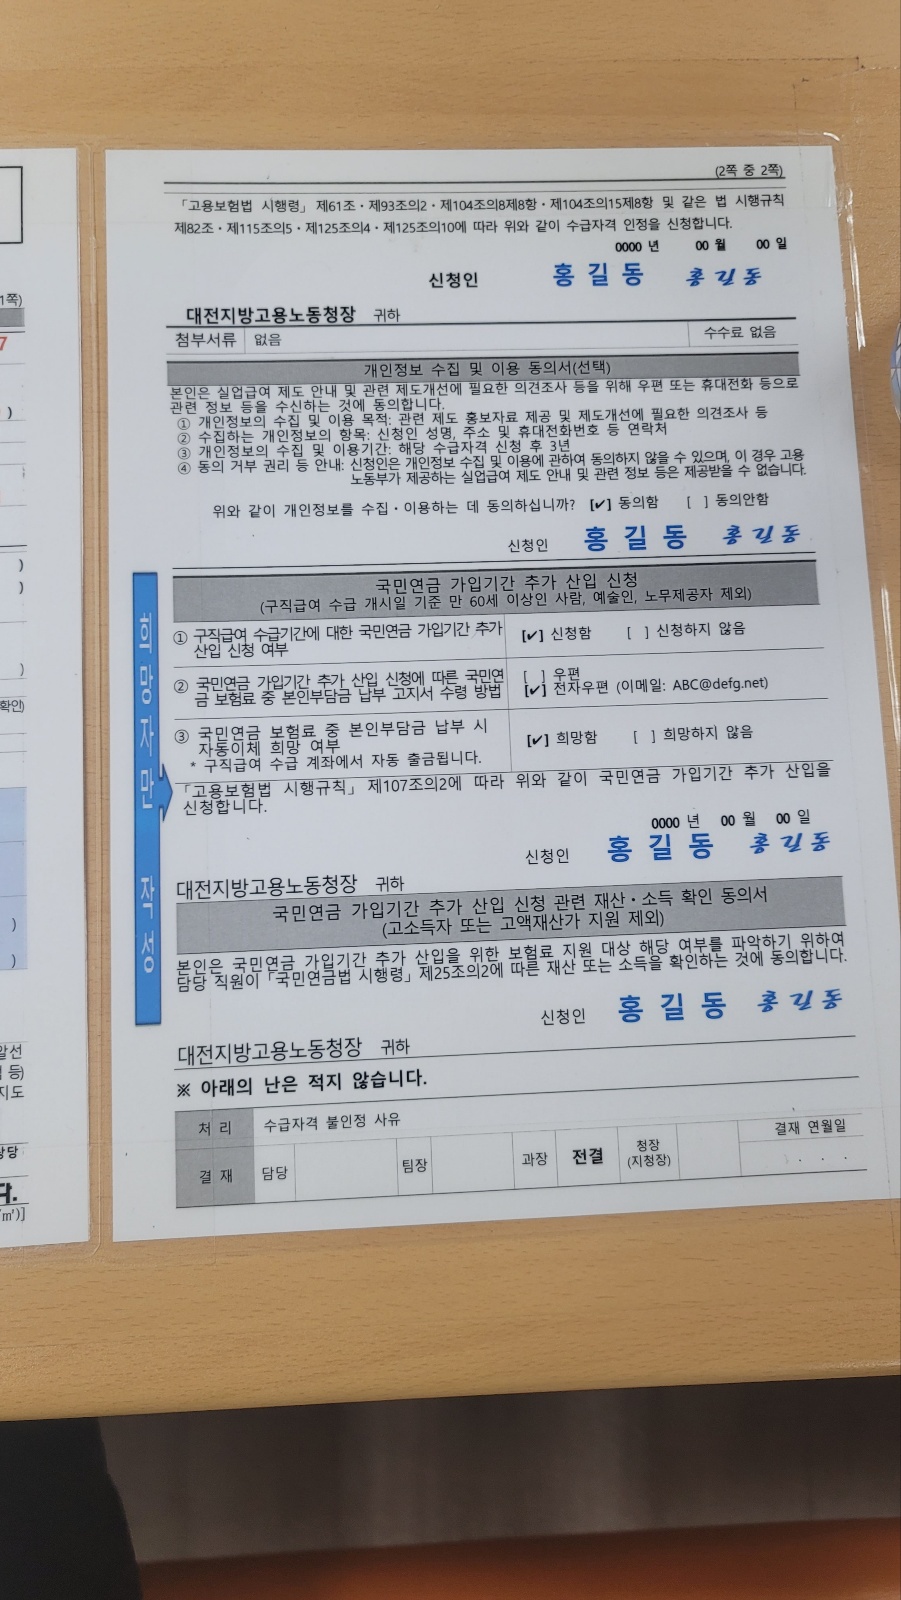 1쪽)
7
)
)
)
)
확인)
)
)
알선
등)
지도
다.
/㎡)]
(2쪽 중 2쪽)
「고용보험법 시행령」 제61조·제93조의2·제104조의8제8항·제104조의15제8항 및 같은 법 시행규칙
제82조·제115조의5·제125조의4·제125조의10에 따라 위와 같이 수급자격 인정을 신청합니다.
0000 년 00 월 00 일
신청인 홍 길 동 홍 길 동
대전지방고용노동청장 귀하
첨부서류 없음 수수료 없음
개인정보 수집 및 이용 동의서(선택)
본인은 실업급여 제도 안내 및 관련 제도개선에 필요한 의견조사 등을 위해 우편 또는 휴대전화 등으로
관련 정보 등을 수신하는 것에 동의합니다.
① 개인정보의 수집 및 이용 목적: 관련 제도 홍보자료 제공 및 제도개선에 필요한 의견조사 등
② 수집하는 개인정보의 항목: 신청인 성명, 주소 및 휴대전화번호 등 연락처
③ 개인정보의 수집 및 이용기간: 해당 수급자격 신청 후 3년
④ 동의 거부 권리 등 안내: 신청인은 개인정보 수집 및 이용에 관하여 동의하지 않을 수 있으며, 이 경우 고용
노동부가 제공하는 실업급여 제도 안내 및 관련 정보 등은 제공받을 수 없습니다.
위와 같이 개인정보를 수집·이용하는 데 동의하십니까? [✔] 동의함 [ ] 동의안함
신청인 홍 길 동 홍 길 동
희망자만 작성
국민연금 가입기간 추가 산입 신청
(구직급여 수급 개시일 기준 만 60세 이상인 사람, 예술인, 노무제공자 제외)
① 구직급여 수급기간에 대한 국민연금 가입기간 추가
산입 신청 여부
[✔] 신청함 [ ] 신청하지 않음
② 국민연금 가입기간 추가 산입 신청에 따른 국민연
금 보험료 중 본인부담금 납부 고지서 수령 방법
[ ] 우편
[✔] 전자우편 (이메일: ABC@defg.net)
③ 국민연금 보험료 중 본인부담금 납부 시
자동이체 희망 여부
* 구직급여 수급 계좌에서 자동 출금됩니다.
[✔] 희망함 [ ] 희망하지 않음
「고용보험법 시행규칙」 제107조의2에 따라 위와 같이 국민연금 가입기간 추가 산입을
신청합니다.
0000 년 00 월 00 일
신청인 홍 길 동 홍 길 동
대전지방고용노동청장 귀하
국민연금 가입기간 추가 산입 신청 관련 재산·소득 확인 동의서
(고소득자 또는 고액재산가 지원 제외)
본인은 국민연금 가입기간 추가 산입을 위한 보험료 지원 대상 해당 여부를 파악하기 위하여
담당 직원이 「국민연금법 시행령」 제25조의2에 따른 재산 또는 소득을 확인하는 것에 동의합니다.
신청인 홍 길 동 홍 길 동
대전지방고용노동청장 귀하
※ 아래의 난은 적지 않습니다.
처 리 수급자격 불인정 사유
결재 연월일
결 재 담당 팀장 과장 전결 청장
(지청장)
. . .